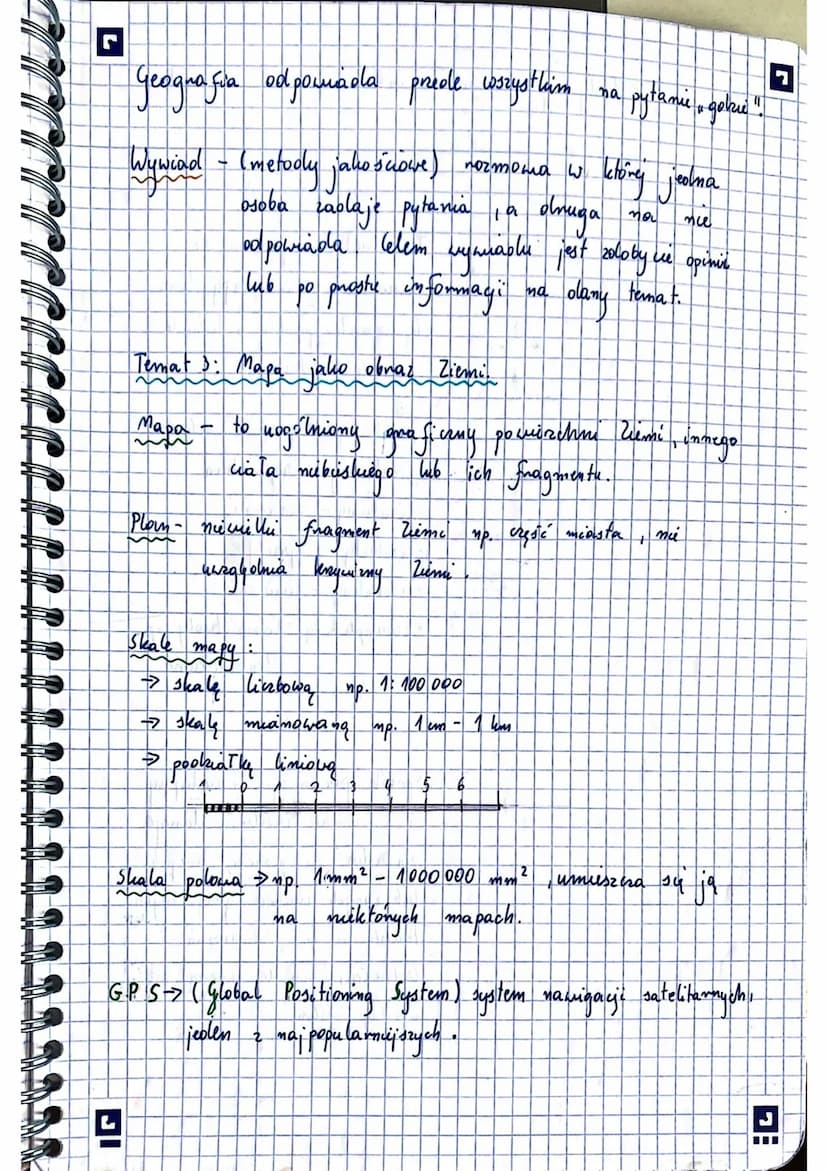 Geografia odpowiada przede wszystkim na pytanie „gdzie".
Wywiad - (metody jakościowe) rozmowa w której jedna
osoba zadaje pytania, a druga na nie
odpowiada. Celem wywiadu jest zdobycie opinii
lub po prostu informacji na dany temat.
Temat 3: Mapa jako obraz Ziemi.
Mapa - to uogólniony graficzny powierzchni Ziemi, innego
ciała niebieskiego lub ich fragmentu.
Plan - niewielki fragment Ziemi np. część miasta, nie
uwzględnia krzywizny Ziemi.
Skale mapy:
→ skalę liczbową np. 1:100 000
→ skalę mianowaną np. 1 cm - 1 km
→ podziałkę liniową
1 0 1 2 3 4 5 6
Skala polowa → np. 1mm² - 1000 000 mm², umieszcza się ją
na niektórych mapach.
GPS → (Global Positioning System) system nawigacji satelitarnych,
jeden z najpopularniejszych.